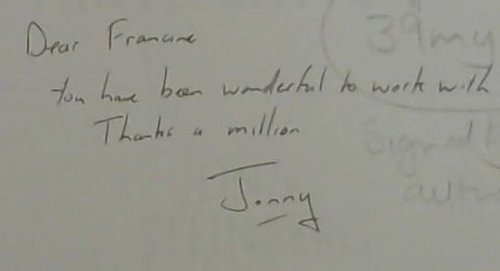 Dear Francine
You have been wonderful to work with
Thanks a million
Jonny
39
Signed